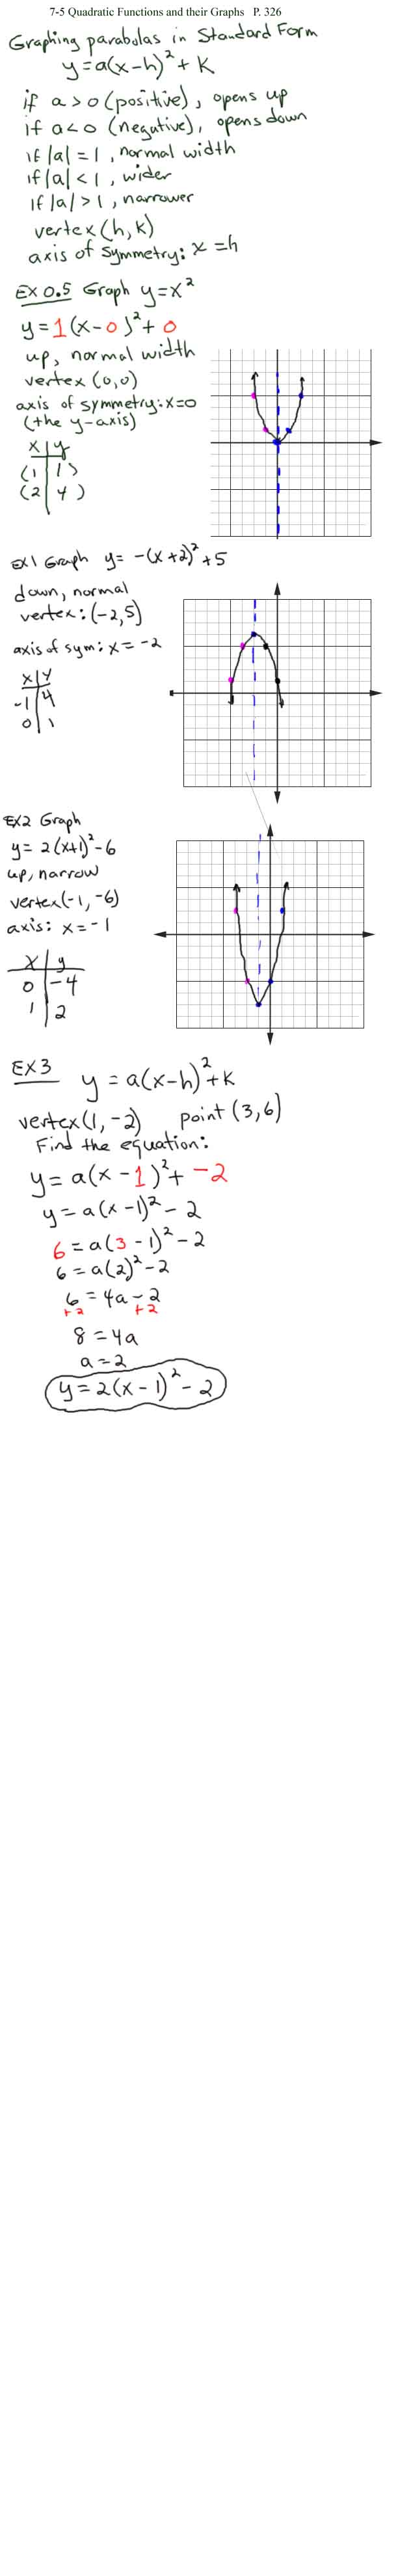 7-5 Quadratic Functions and their Graphs P. 326
Graphing parabolas in Standard Form
y=a(x-h)²+K
if a>0 (positive), opens up
if a<0 (negative), opens down
if |a|=1, normal width
if |a|<1, wider
if |a|>1, narrower
vertex (h,k)
axis of symmetry: x=h
EX 0.5 Graph y=x²
y=1(x-0)²+0
up, normal width
vertex (0,0)
axis of symmetry: x=0
(the y-axis)
x | y
(1 | 1)
(2 | 4)
EX1 Graph y= -(x+2)²+5
down, normal
vertex: (-2,5)
axis of sym: x=-2
x | y
-1 | 4
0 | 1
EX2 Graph
y= 2(x+1)²-6
up, narrow
vertex (-1,-6)
axis: x=-1
x | y
0 | -4
1 | 2
EX3 y=a(x-h)²+k
vertex (1,-2) point (3,6)
Find the equation:
y=a(x-1)²+-2
y=a(x-1)²-2
6=a(3-1)²-2
6=a(2)²-2
6=4a-2
+2 +2
8=4a
a=2
y=2(x-1)²-2